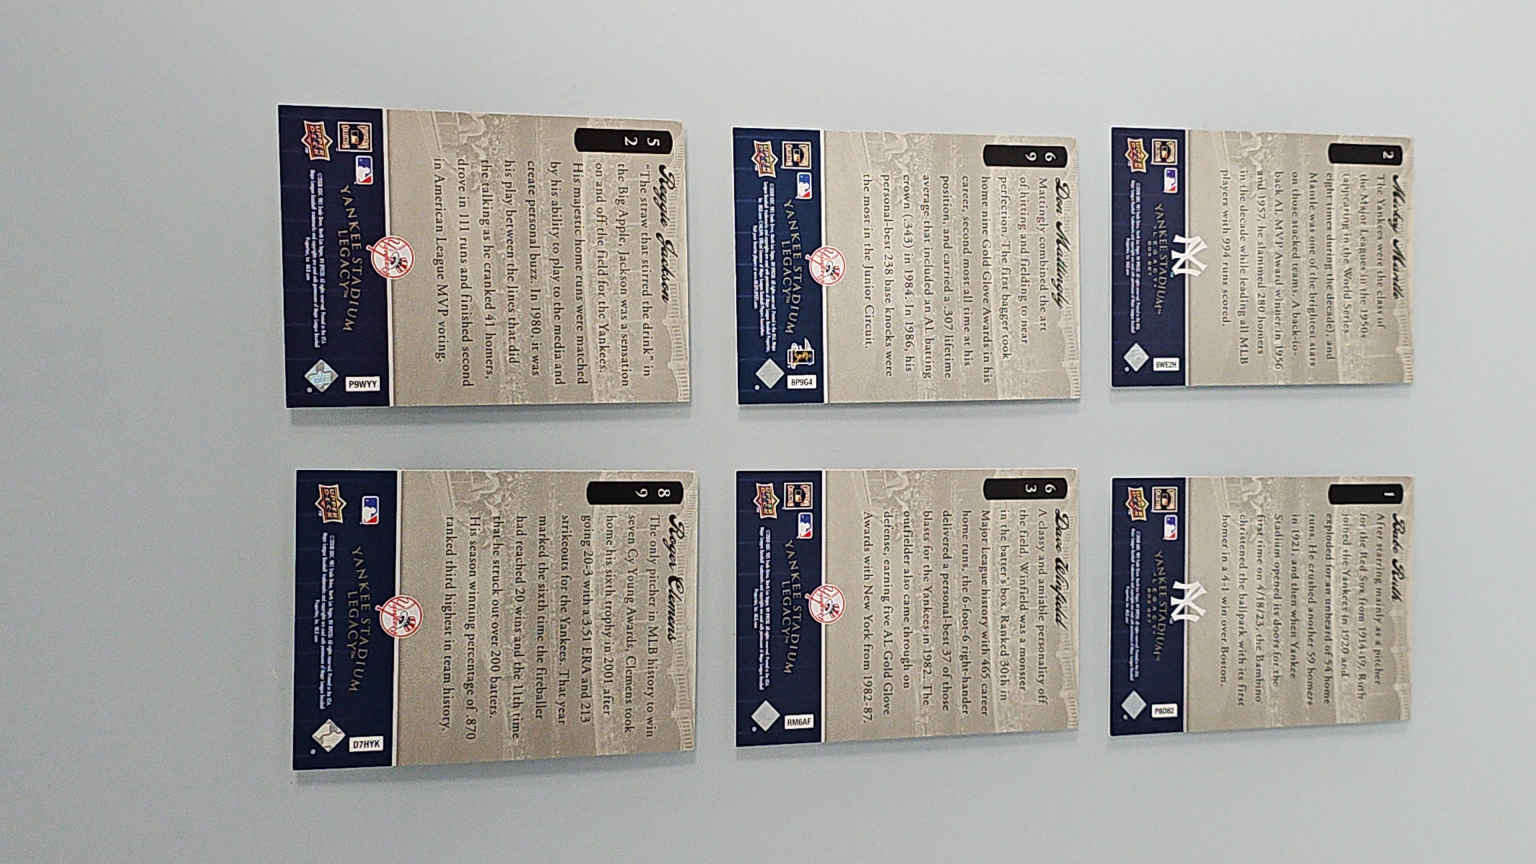 2
Mickey Mantle
The Yankees were the class of
the Major Leagues in the 1950s
(appearing in the World Series
eight times during the decade) and
Mantle was one of the brightest stars
on those stacked teams. A back-to-
back AL MVP Award winner in 1956
and 1957, he slammed 280 homers
in the decade while leading all MLB
players with 994 runs scored.
YANKEE STADIUM™
LEGACY
BOX SET
UPPER DECK
6WE2H
1
Babe Ruth
After starring mainly as a pitcher
for the Red Sox from 1914-19, Ruth
joined the Yankees in 1920 and
exploded for an unheard of 54 home
runs. He crushed another 59 homers
in 1921 and then when Yankee
Stadium opened its doors for the
first time on 4/18/23, the Bambino
christened the ballpark with its first
homer in a 4-1 win over Boston.
YANKEE STADIUM™
LEGACY
BOX SET
UPPER DECK
P8D82
69
Don Mattingly
Mattingly combined the art
of hitting and fielding to near
perfection. The first bagger took
home nine Gold Glove Awards in his
career, second most all time at his
position, and carried a .307 lifetime
average that included an AL batting
crown (.343) in 1984. In 1986, his
personal-best 238 base knocks were
the most in the Junior Circuit.
YANKEE STADIUM
LEGACY™
UPPER DECK
BP9G4
63
Dave Winfield
A classy and amiable personality off
the field, Winfield was a monster
in the batter's box. Ranked 30th in
Major League history with 465 career
home runs, the 6-foot-6 right-hander
delivered a personal-best 37 of those
blasts for the Yankees in 1982. The
outfielder also came through on
defense, earning five AL Gold Glove
Awards with New York from 1982-87.
YANKEE STADIUM
LEGACY™
UPPER DECK
RM6AF
52
Reggie Jackson
"The straw that stirred the drink" in
the Big Apple, Jackson was a sensation
on and off the field for the Yankees.
His majestic home runs were matched
by his ability to play to the media and
create personal buzz. In 1980, it was
his play between the lines that did
the talking as he cranked 41 homers,
drove in 111 runs and finished second
in American League MVP voting.
YANKEE STADIUM
LEGACY™
UPPER DECK
P9WYY
89
Roger Clemens
The only pitcher in MLB history to win
seven Cy Young Awards, Clemens took
home his sixth trophy in 2001 after
going 20-3 with a 3.51 ERA and 213
strikeouts for the Yankees. That year
marked the sixth time the fireballer
had reached 20 wins and the 11th time
that he struck out over 200 batters.
His season winning percentage of .870
ranked third highest in team history.
YANKEE STADIUM
LEGACY™
UPPER DECK
D7HYK